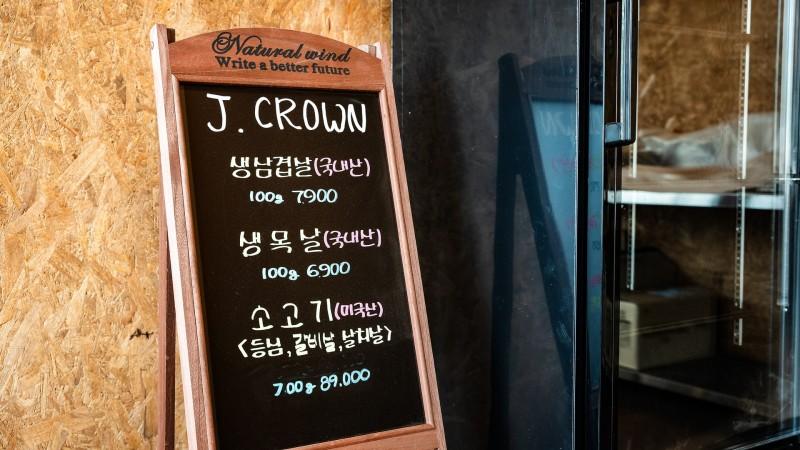 Natural wind
Write a better future
J. CROWN
생삼겹살(국내산)
100g 7.900
생 목 살(국내산)
100g 6.900
소 고 기(미국산)
<등심, 갈비살, 살치살>
700g 89.000